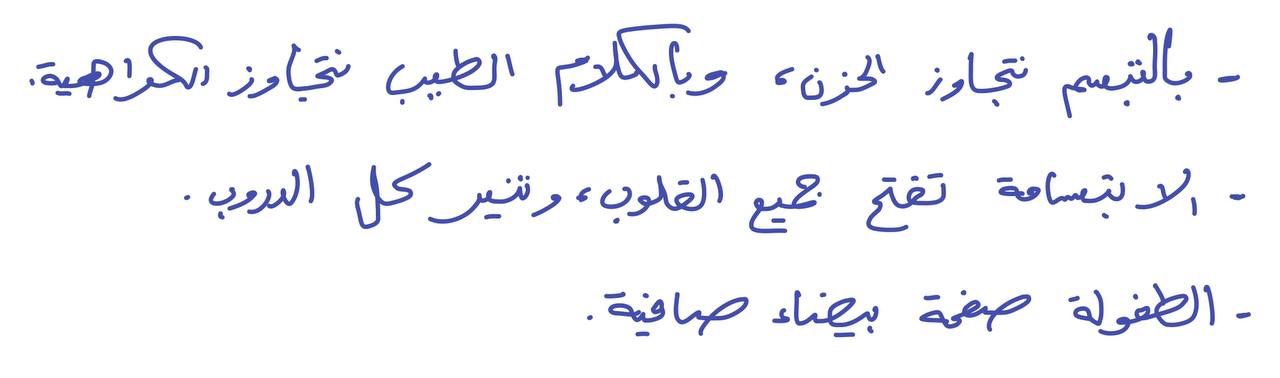 - بالتبسم نتجاوز الحزن، وبالكلام الطيب نتجاوز الكراهية.
- الابتسامة تفتح جميع القلوب، وتنير كل الدروب.
- الطفولة صفحة بيضاء صافية.